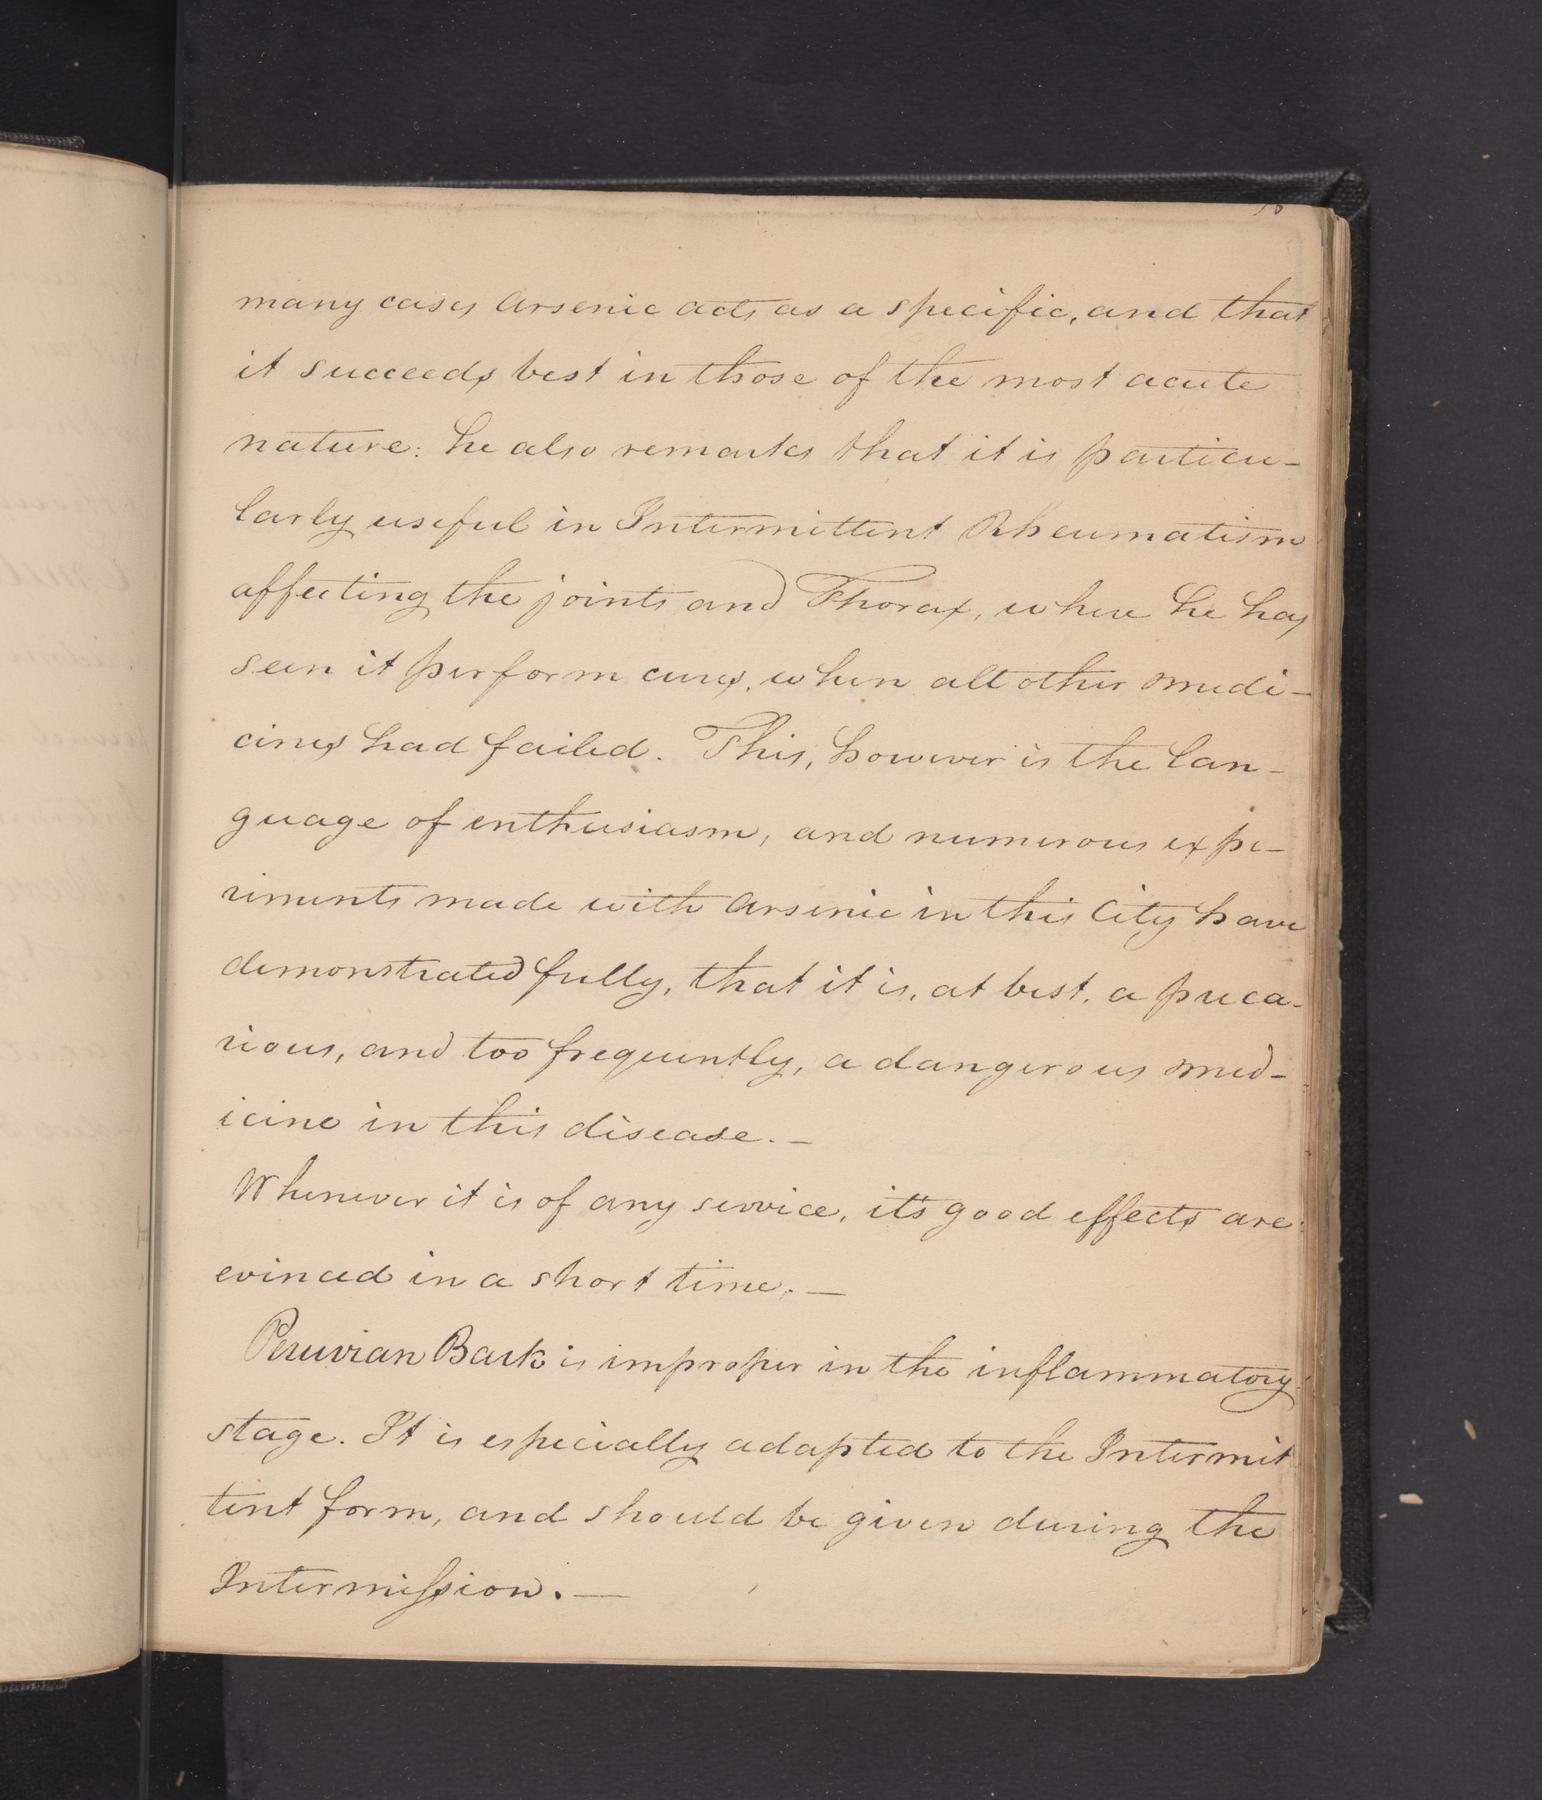 many cases Arsenic acts as a specific, and that
it succeeds best in those of the most acute
nature: he also remarks that it is particu-
larly useful in Intermittent Rheumatism
affecting the joints and Thorax, where he has
seen it perform cures, when all other medi-
cines had failed. This, however is the lan-
guage of enthusiasm, and numerous expe-
riments made with Arsenic in this City have
demonstrated fully, that it is, at best, a preca-
rious, and too frequently, a dangerous med-
icine in this disease. —
Whenever it is of any service, it's good effects are
evinced in a short time. —
Peruvian Bark is improper in the inflammatory
stage. It is especially adapted to the Intermit
tent form, and should be given during the
Intermission. —